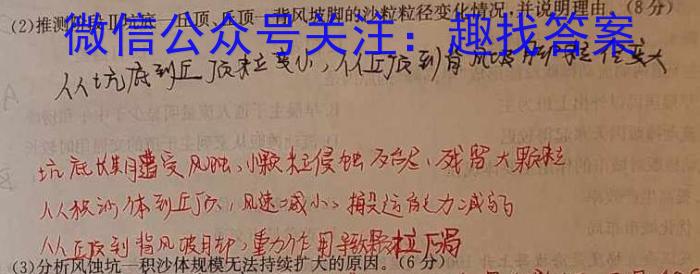 (2)推测 坑底—丘顶、丘顶—背风坡脚的沙粒粒径变化情况,并说明理由。(8分)
微信公众号关注:趣找答案
从坑底到丘顶粒径变小,从丘顶到背风坡脚粒径变大
坑底长期遭受风蚀,小颗粒侵蚀及台,残留大颗粒
从积沙体到丘顶,风速减小,搬运能力减弱
从丘顶到背风坡脚,重力作用导致颗粒下滑
(3)分析风蚀坑—积沙体规模无法持续扩大的原因。(6分)